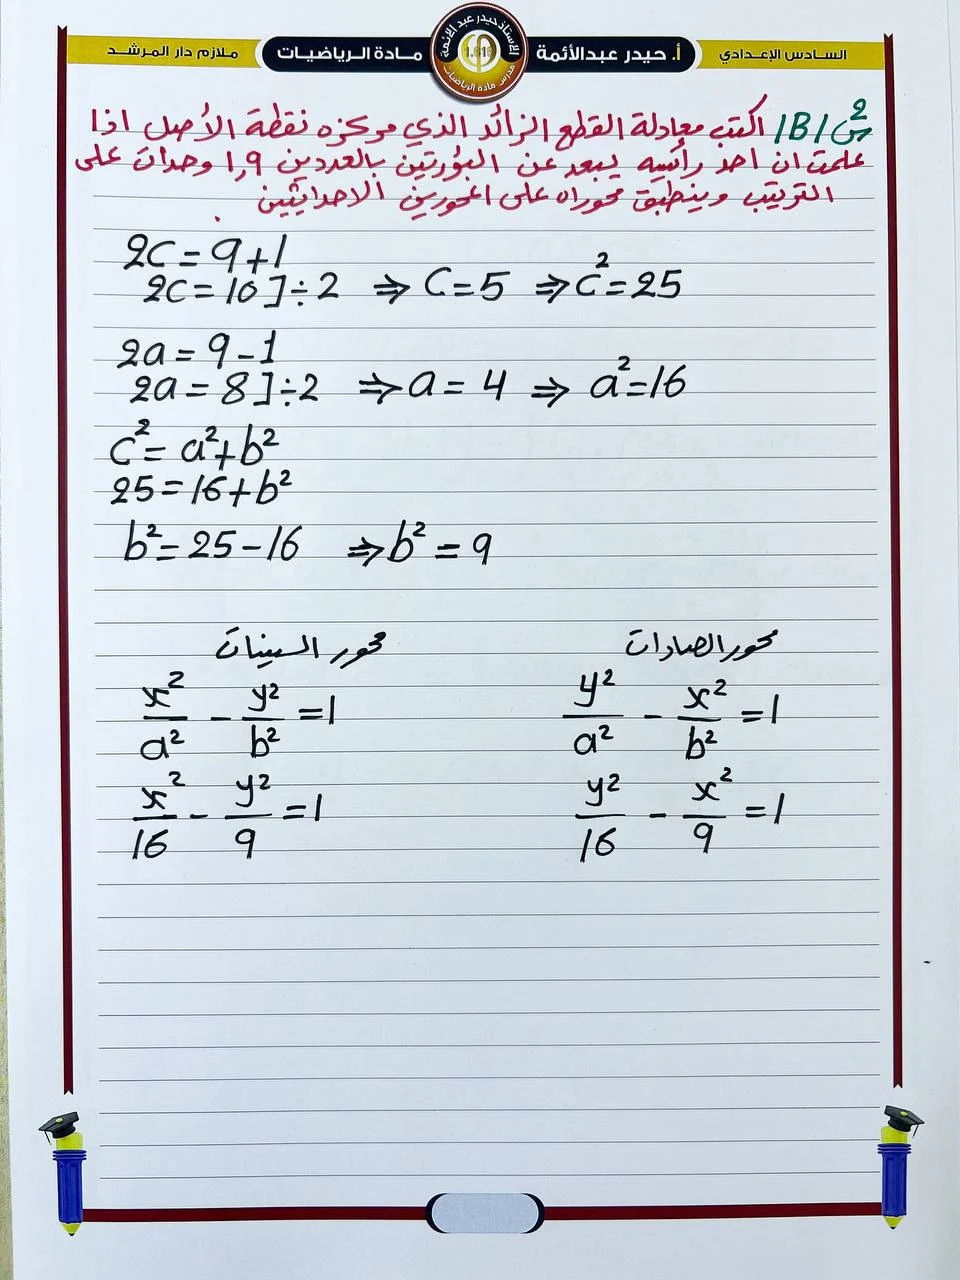 السادس الإعدادي
أ. حيدر عبدالأئمة
الاستاذ حيدر عبد الأئمة
1.618
مدرس مادة الرياضيات
مادة الرياضيات
ملازم دار المرشد
س2 /B/ اكتب معادلة القطع الزائد الذي مركزه نقطة الأصل اذا
علمت ان احد رأسيه يبعد عن البؤرتين بالعددين 1,9 وحدات على
الترتيب وينطبق محوراه على المحورين الاحداثيين .
2c = 9 + 1
2c = 10 ] ÷ 2 ⇒ c = 5 ⇒ c² = 25
2a = 9 - 1
2a = 8 ] ÷ 2 ⇒ a = 4 ⇒ a² = 16
c² = a² + b²
25 = 16 + b²
b² = 25 - 16 ⇒ b² = 9
محور الصادات
y²/a² - x²/b² = 1
y²/16 - x²/9 = 1
محور السينات
x²/a² - y²/b² = 1
x²/16 - y²/9 = 1